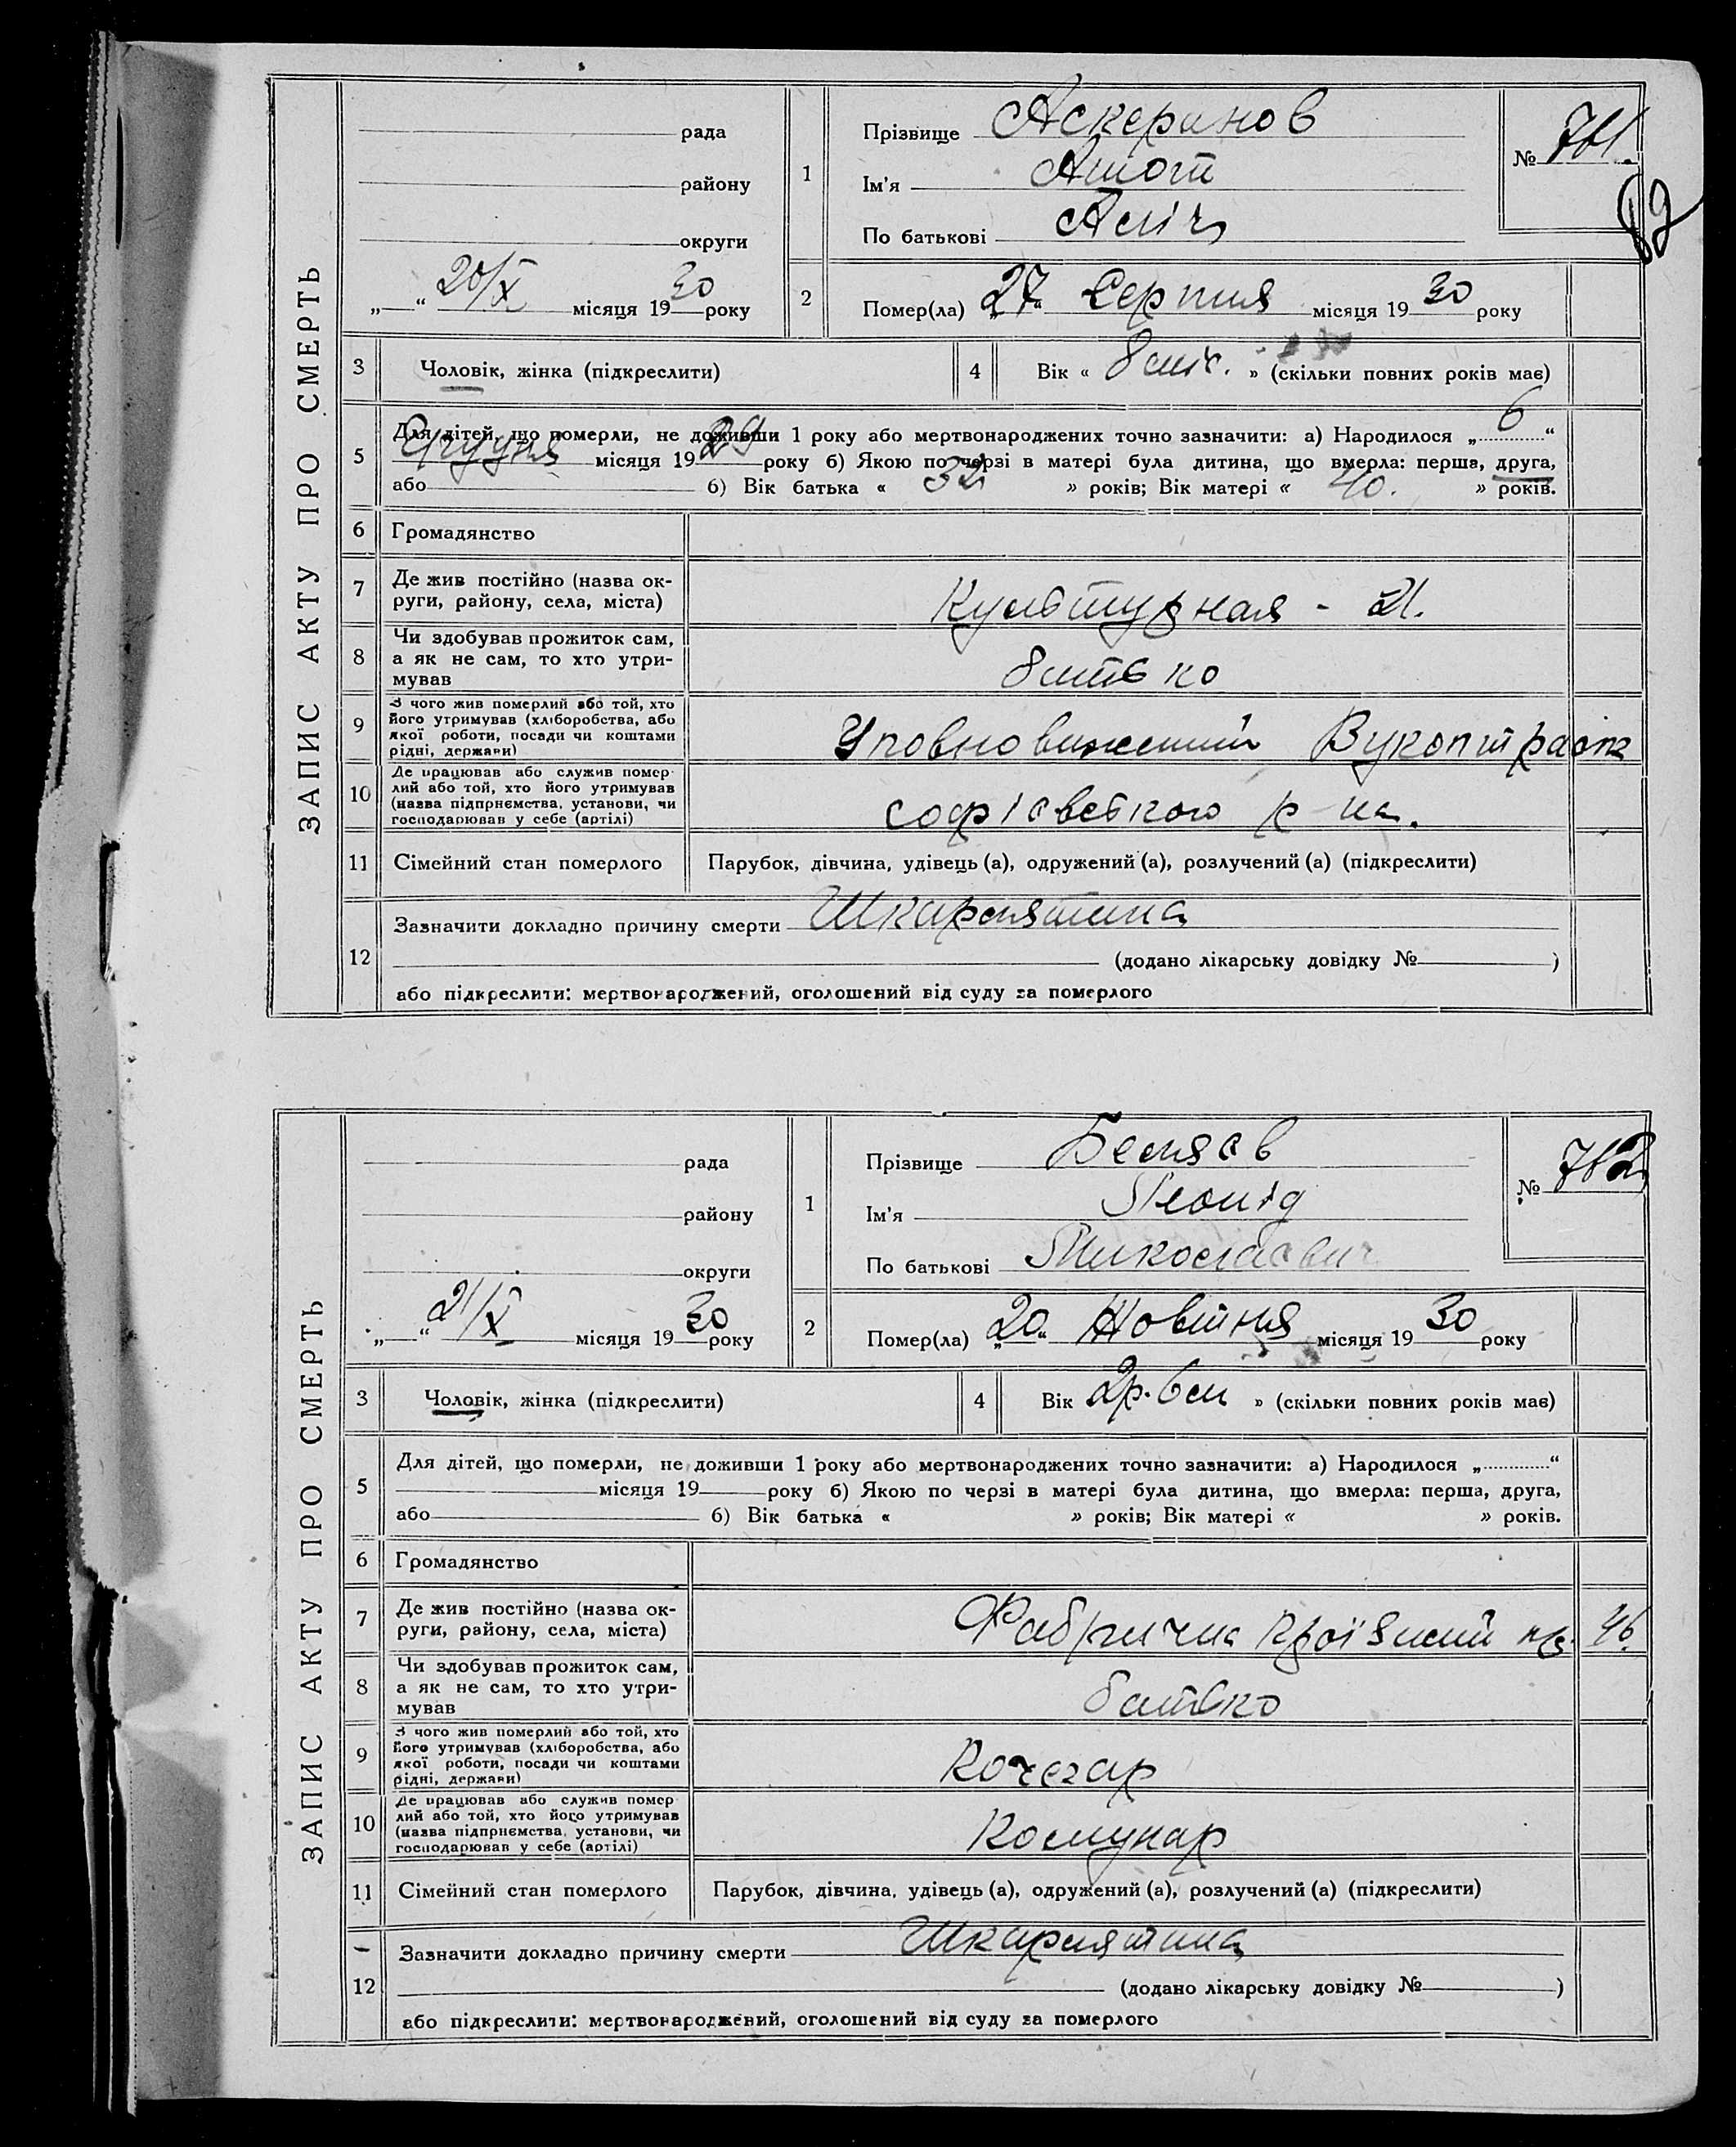 ЗАПИС АКТУ ПРО СМЕРТЬ
рада
району
округи
„ “ 20/X місяця 1930 року
1
Прізвище Аскеранов
Ім'я Ашот
По батькові
№ 711.
89
2
Помер(ла) „27“ Серпня місяця 1930 року
3
Чоловік, жінка (підкреслити)
4
Вік « 8 міс. » (скільки повних років має)
5
Для дітей, що померли, не доживши 1 року або мертвонароджених точно зазначити: а) Народилося „6“
Грудня місяця 1929 року б) Якою по черзі в матері була дитина, що вмерла: перша, друга,
або б) Вік батька « 32 » років; Вік матері « 40. » років.
6
Громадянство
7
Де жив постійно (назва ок-
руги, району, села, міста)
Культурная - 21.
8
Чи здобував прожиток сам,
а як не сам, то хто утри-
мував
батько
9
З чого жив померлий або той, хто
його утримував (хліборобства, або
якої роботи, посади чи коштами
рідні, держави)
Уповноважений
10
Де працював або служив помер-
лий або той, хто його утримував
(назва підприємства, установи, чи
господарював у себе (артілі)
софієвського р-на.
11
Сімейний стан померлого
Парубок, дівчина, удівець (а), одружений (а), розлучений (а) (підкреслити)
12
Зазначити докладно причину смерти Шкарлятина
(додано лікарську довідку № )
або підкреслити: мертвонароджений, оголошений від суду за померлого
ЗАПИС АКТУ ПРО СМЕРТЬ
рада
району
округи
„ “ 21/X місяця 1930 року
1
Прізвище Беляєв
Ім'я Леонід
По батькові Миколаєвич
№ 712
2
Помер(ла) „20“ Жовтня місяця 1930 року
3
Чоловік, жінка (підкреслити)
4
Вік 2р. 6м » (скільки повних років має)
5
Для дітей, що померли, не доживши 1 року або мертвонароджених точно зазначити: а) Народилося „ “
місяця 19 року б) Якою по черзі в матері була дитина, що вмерла: перша, друга,
або б) Вік батька « » років; Вік матері « » років.
6
Громадянство
7
Де жив постійно (назва ок-
руги, району, села, міста)
Фабрична 46.
8
Чи здобував прожиток сам,
а як не сам, то хто утри-
мував
батько
9
З чого жив померлий або той, хто
його утримував (хліборобства, або
якої роботи, посади чи коштами
рідні, держави)
Кочегар
10
Де працював або служив помер-
лий або той, хто його утримував
(назва підприємства, установи, чи
господарював у себе (артілі)
Комунар
11
Сімейний стан померлого
Парубок, дівчина, удівець (а), одружений (а), розлучений (а) (підкреслити)
12
Зазначити докладно причину смерти Шкарлятина
(додано лікарську довідку № )
або підкреслити: мертвонароджений, оголошений від суду за померлого